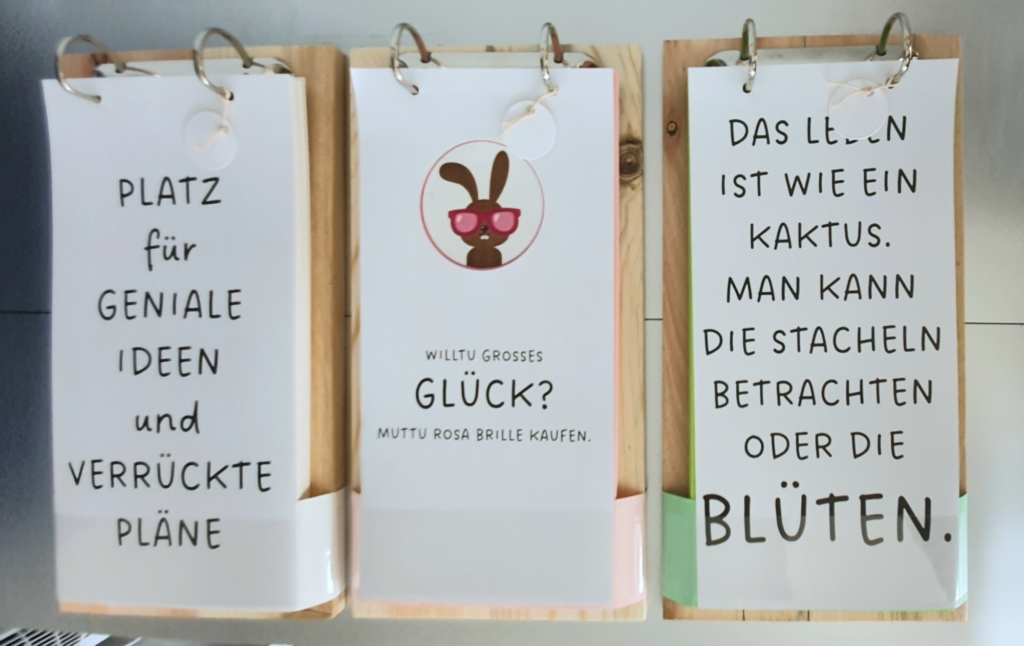 PLATZ
für
GENIALE
IDEEN
und
VERRÜCKTE
PLÄNE
WILLTU GROSSES
GLÜCK?
MUTTU ROSA BRILLE KAUFEN.
DAS LEBEN
IST WIE EIN
KAKTUS.
MAN KANN
DIE STACHELN
BETRACHTEN
ODER DIE
BLÜTEN.